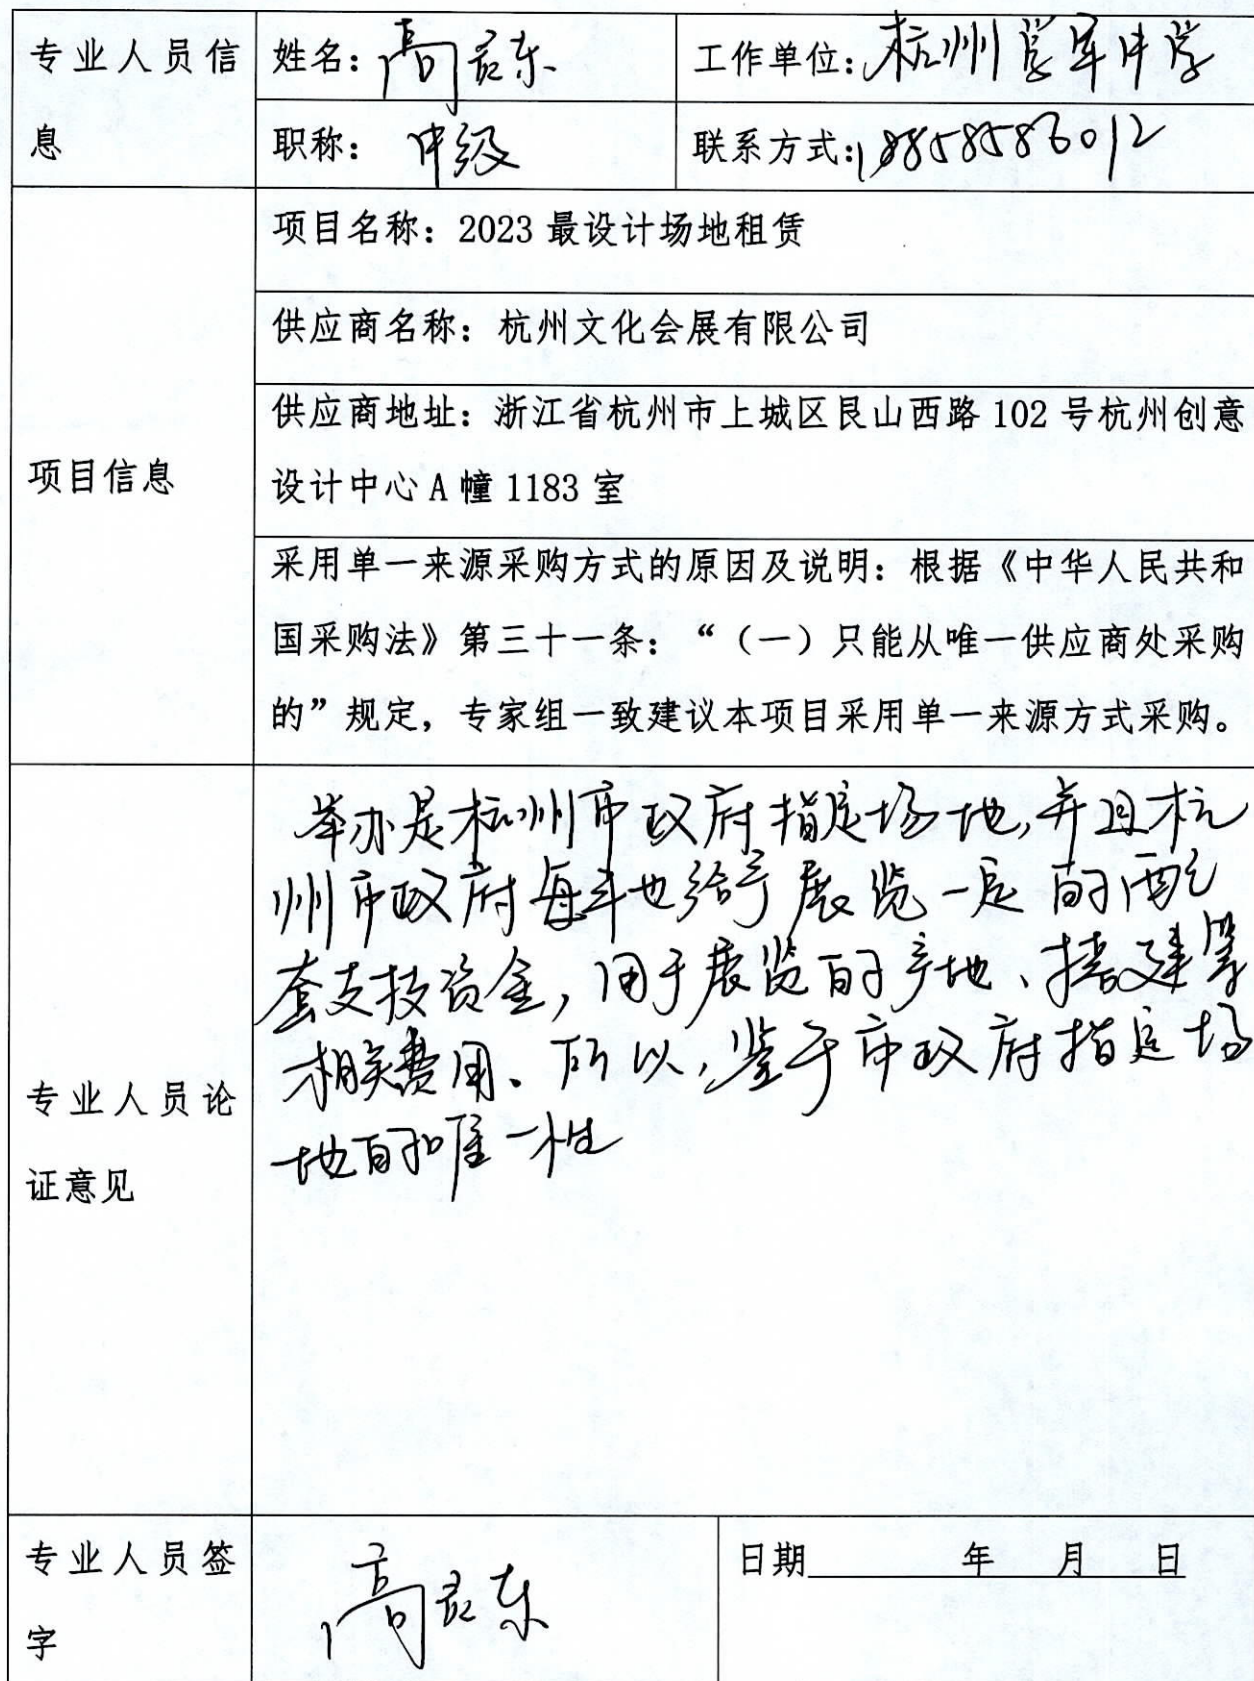 专业人员信息
姓名：高君东
工作单位：杭州学军中学
职称：中级
联系方式：18858586012
项目信息
项目名称：2023 最设计场地租赁
供应商名称：杭州文化会展有限公司
供应商地址：浙江省杭州市上城区艮山西路 102 号杭州创意
设计中心 A 幢 1183 室
采用单一来源采购方式的原因及说明：根据《中华人民共和
国采购法》第三十一条：“（一）只能从唯一供应商处采购
的”规定，专家组一致建议本项目采用单一来源方式采购。
专业人员论
证意见
举办是杭州市政府指定场地，并且杭
州市政府每年也给予展览一定的配
套支持资金，用于展览的产地、搭建等
相关费用、所以，鉴于市政府指定场
地的唯一性
专业人员签
字
高君东
日期 年 月 日